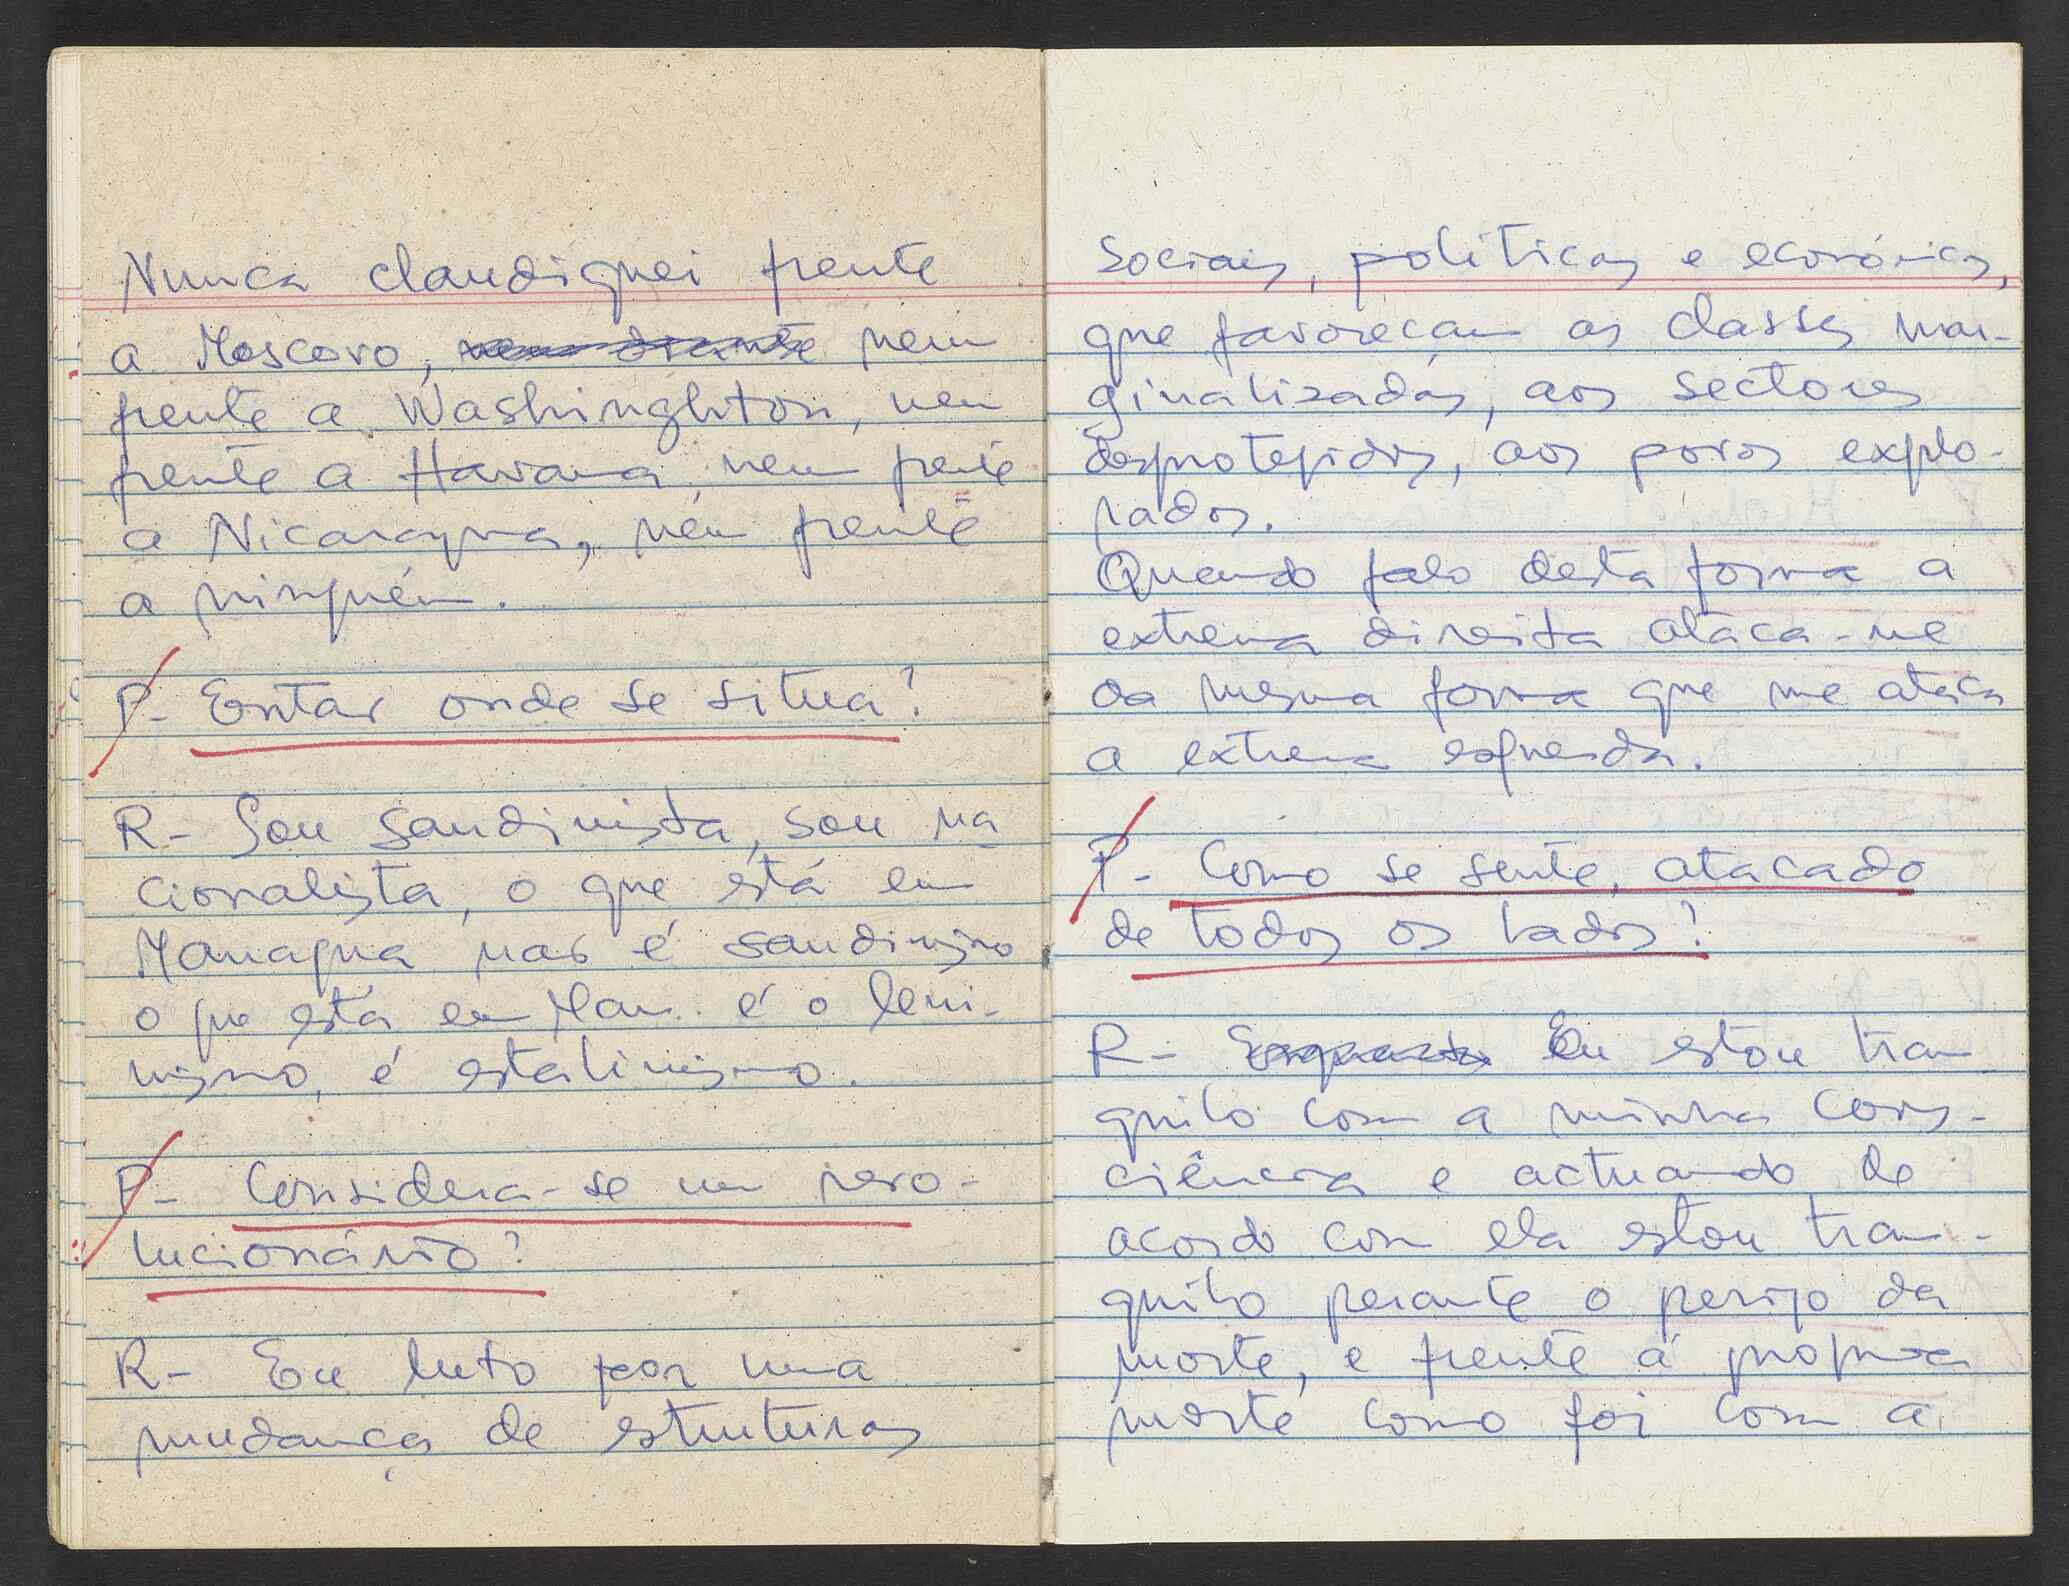 Nunca claudiquei frente
a Moscovo, nem diante nem
frente a Washinghton, nem
frente a Havana, nem frente
a Nicaragua, nem frente
a ninguém.
P- Entao onde se situa?
R- Sou sandinista, sou na
cionalista, o que está em
Managua nao é sandinismo
o que está em Man. é o leni-
nismo, é estalinismo.
P- Considera-se um revo-
lucionário?
R- Eu luto por uma
mudança de estruturas
sociais, políticas e económicas,
que favoreçam as classes mar-
ginalizadas, aos sectores
desprotegidos, aos povos explo-
rados.
Quando falo desta forma a
extrema direita ataca-me
da mesma forma que me ataca
a extrema esquerda.
P- Como se sente, atacado
de todos os lados?
R- Enquanto Eu estou tran
quilo com a minha cons-
ciência e actuando de
acordo com ela estou tran-
quilo perante o perigo da
morte, e frente á propria
morte como foi com a